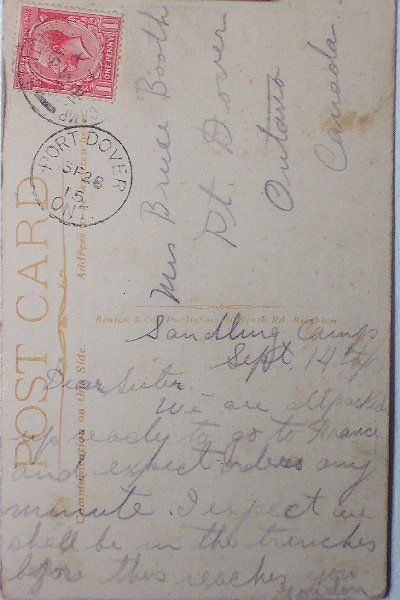 ONE PENNY
CAMP
PORT DOVER
SP 28
15
ONT
POST CARD
Address
Communication on this Side.
Benton & Co. Publishers, North Rd Brighton
Mrs Bruce Booth
Pt. Dover
Ontario
Canada
Sandling Camp
Sept 14th
Dear Sister.
We are all packed
up ready to go to France
and expect orders any
minute. I expect we
shall be in the trenches
before this reaches you